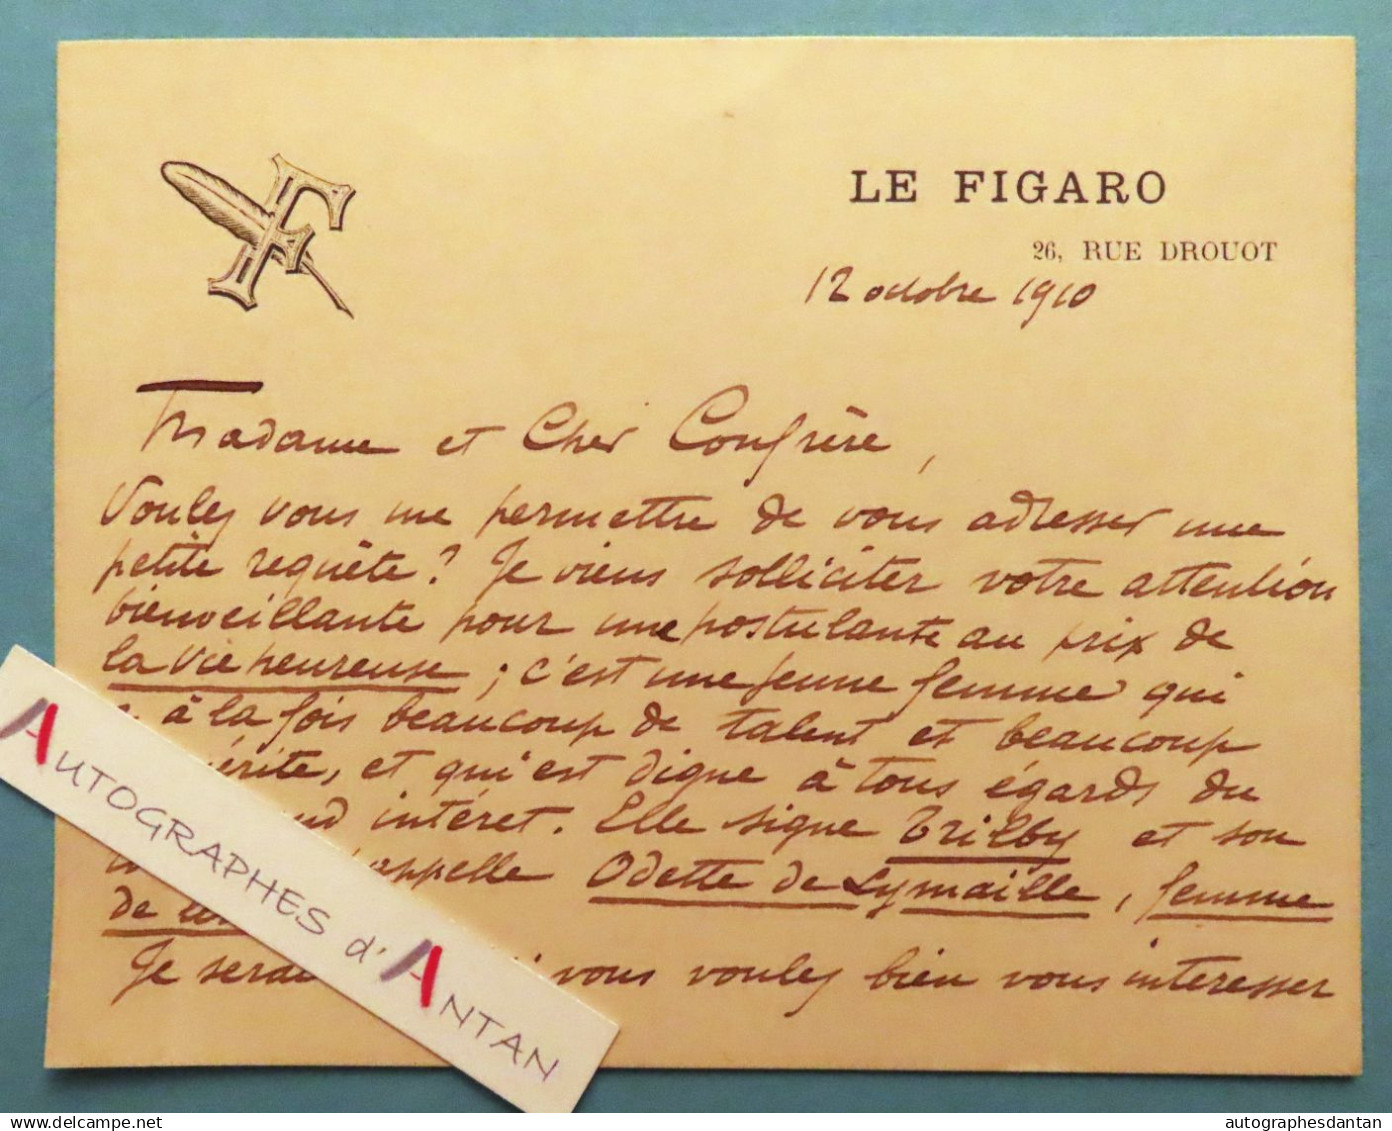 F
LE FIGARO
26, RUE DROUOT
12 octobre 1910
Madame et Cher Confrère,
Voulez vous me permettre de vous adresser une
petite requête ? Je viens solliciter votre attention
bienveillante pour une postulante au prix de
la Vie heureuse ; c'est une jeune femme qui
à la fois beaucoup de talent et beaucoup
érite, et qui est digne à tous égards du
intéret. Elle signe Trilby et son
appelle Odette de Lymaille, femme
de
Je serai vous voulez bien vous interesser
AUTOGRAPHES d'ANTAN
autographesdantan